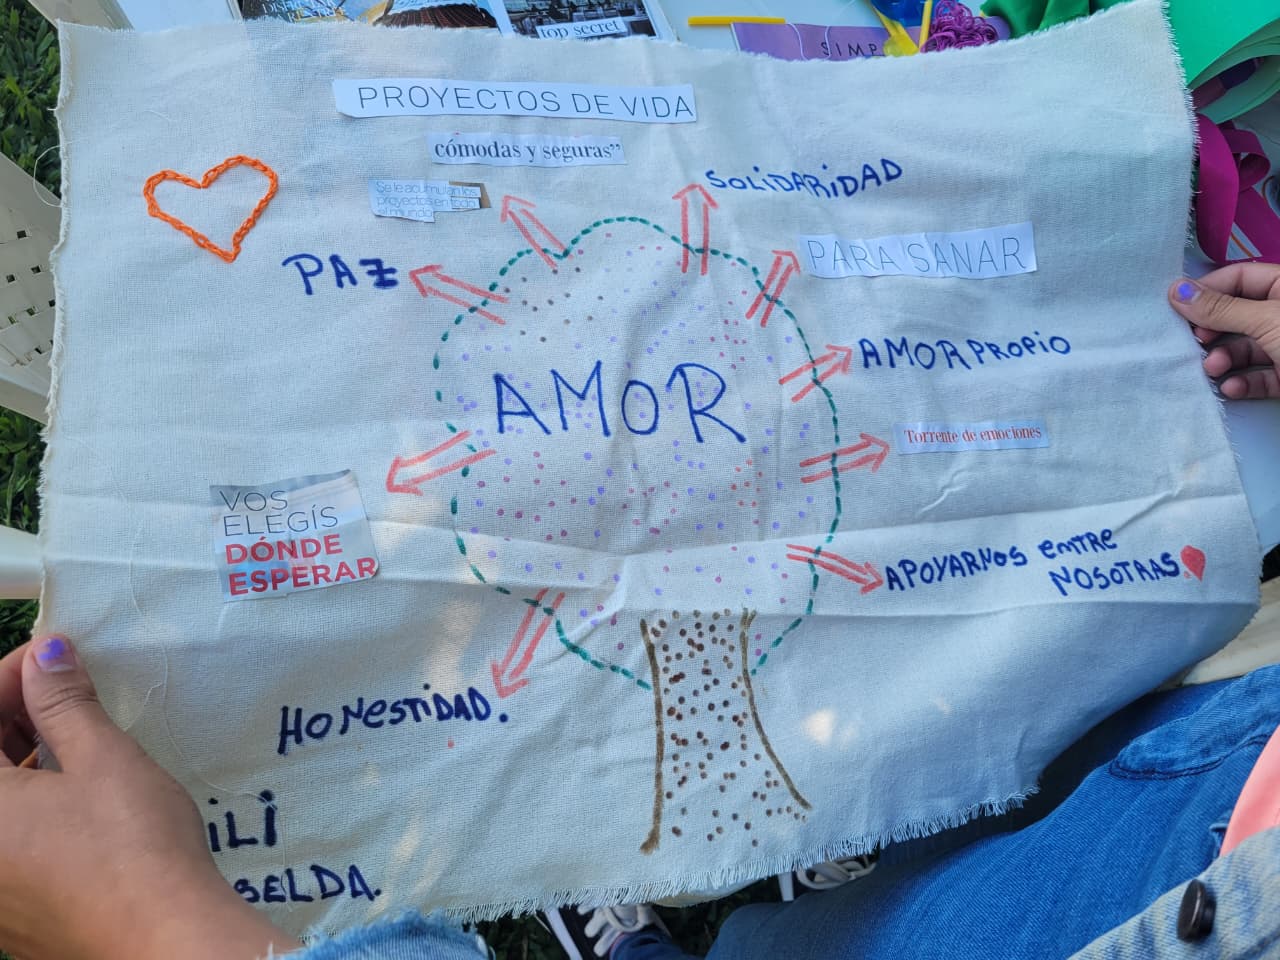 top secret
SIMP
PROYECTOS DE VIDA
cómodas y seguras”
Se le acumulan los
proyectos en todo
el mundo
SOLIDARIDAD
PAZ
PARA SANAR
AMOR PROPIO
AMOR
Torrente de emociones
VOS
ELEGÍS
DÓNDE
ESPERAR
APOYARNOS ENTRE
NOSOTRAS
HONESTIDAD.
iLi
SELDA.